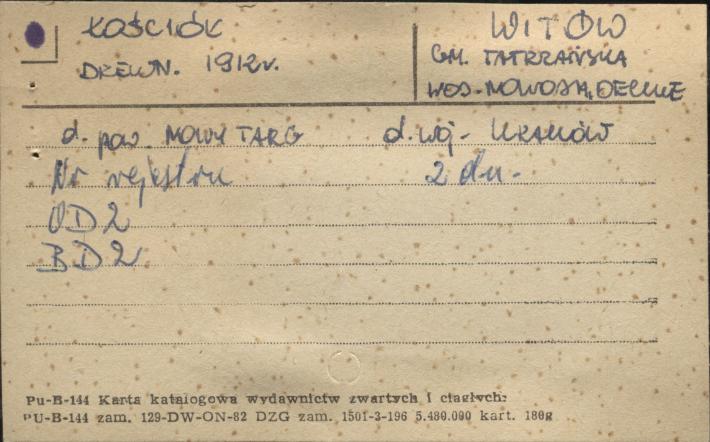 KOŚCIÓŁ
DREWN. 1912r.
WITÓW
GM. TATRZAŃSKA
WOJ. NOWOSĄDECKIE
d. pow. NOWY TARG d. woj. KRAKÓW
Nr rejestru z dn.
OD2
BD2
Pu-B-144 Karta katalogowa wydawnictw zwartych i ciągłych:
PU-B-144 zam. 129-DW-ON-82 DZG zam. 1501-3-196 5.480.000 kart. 180g